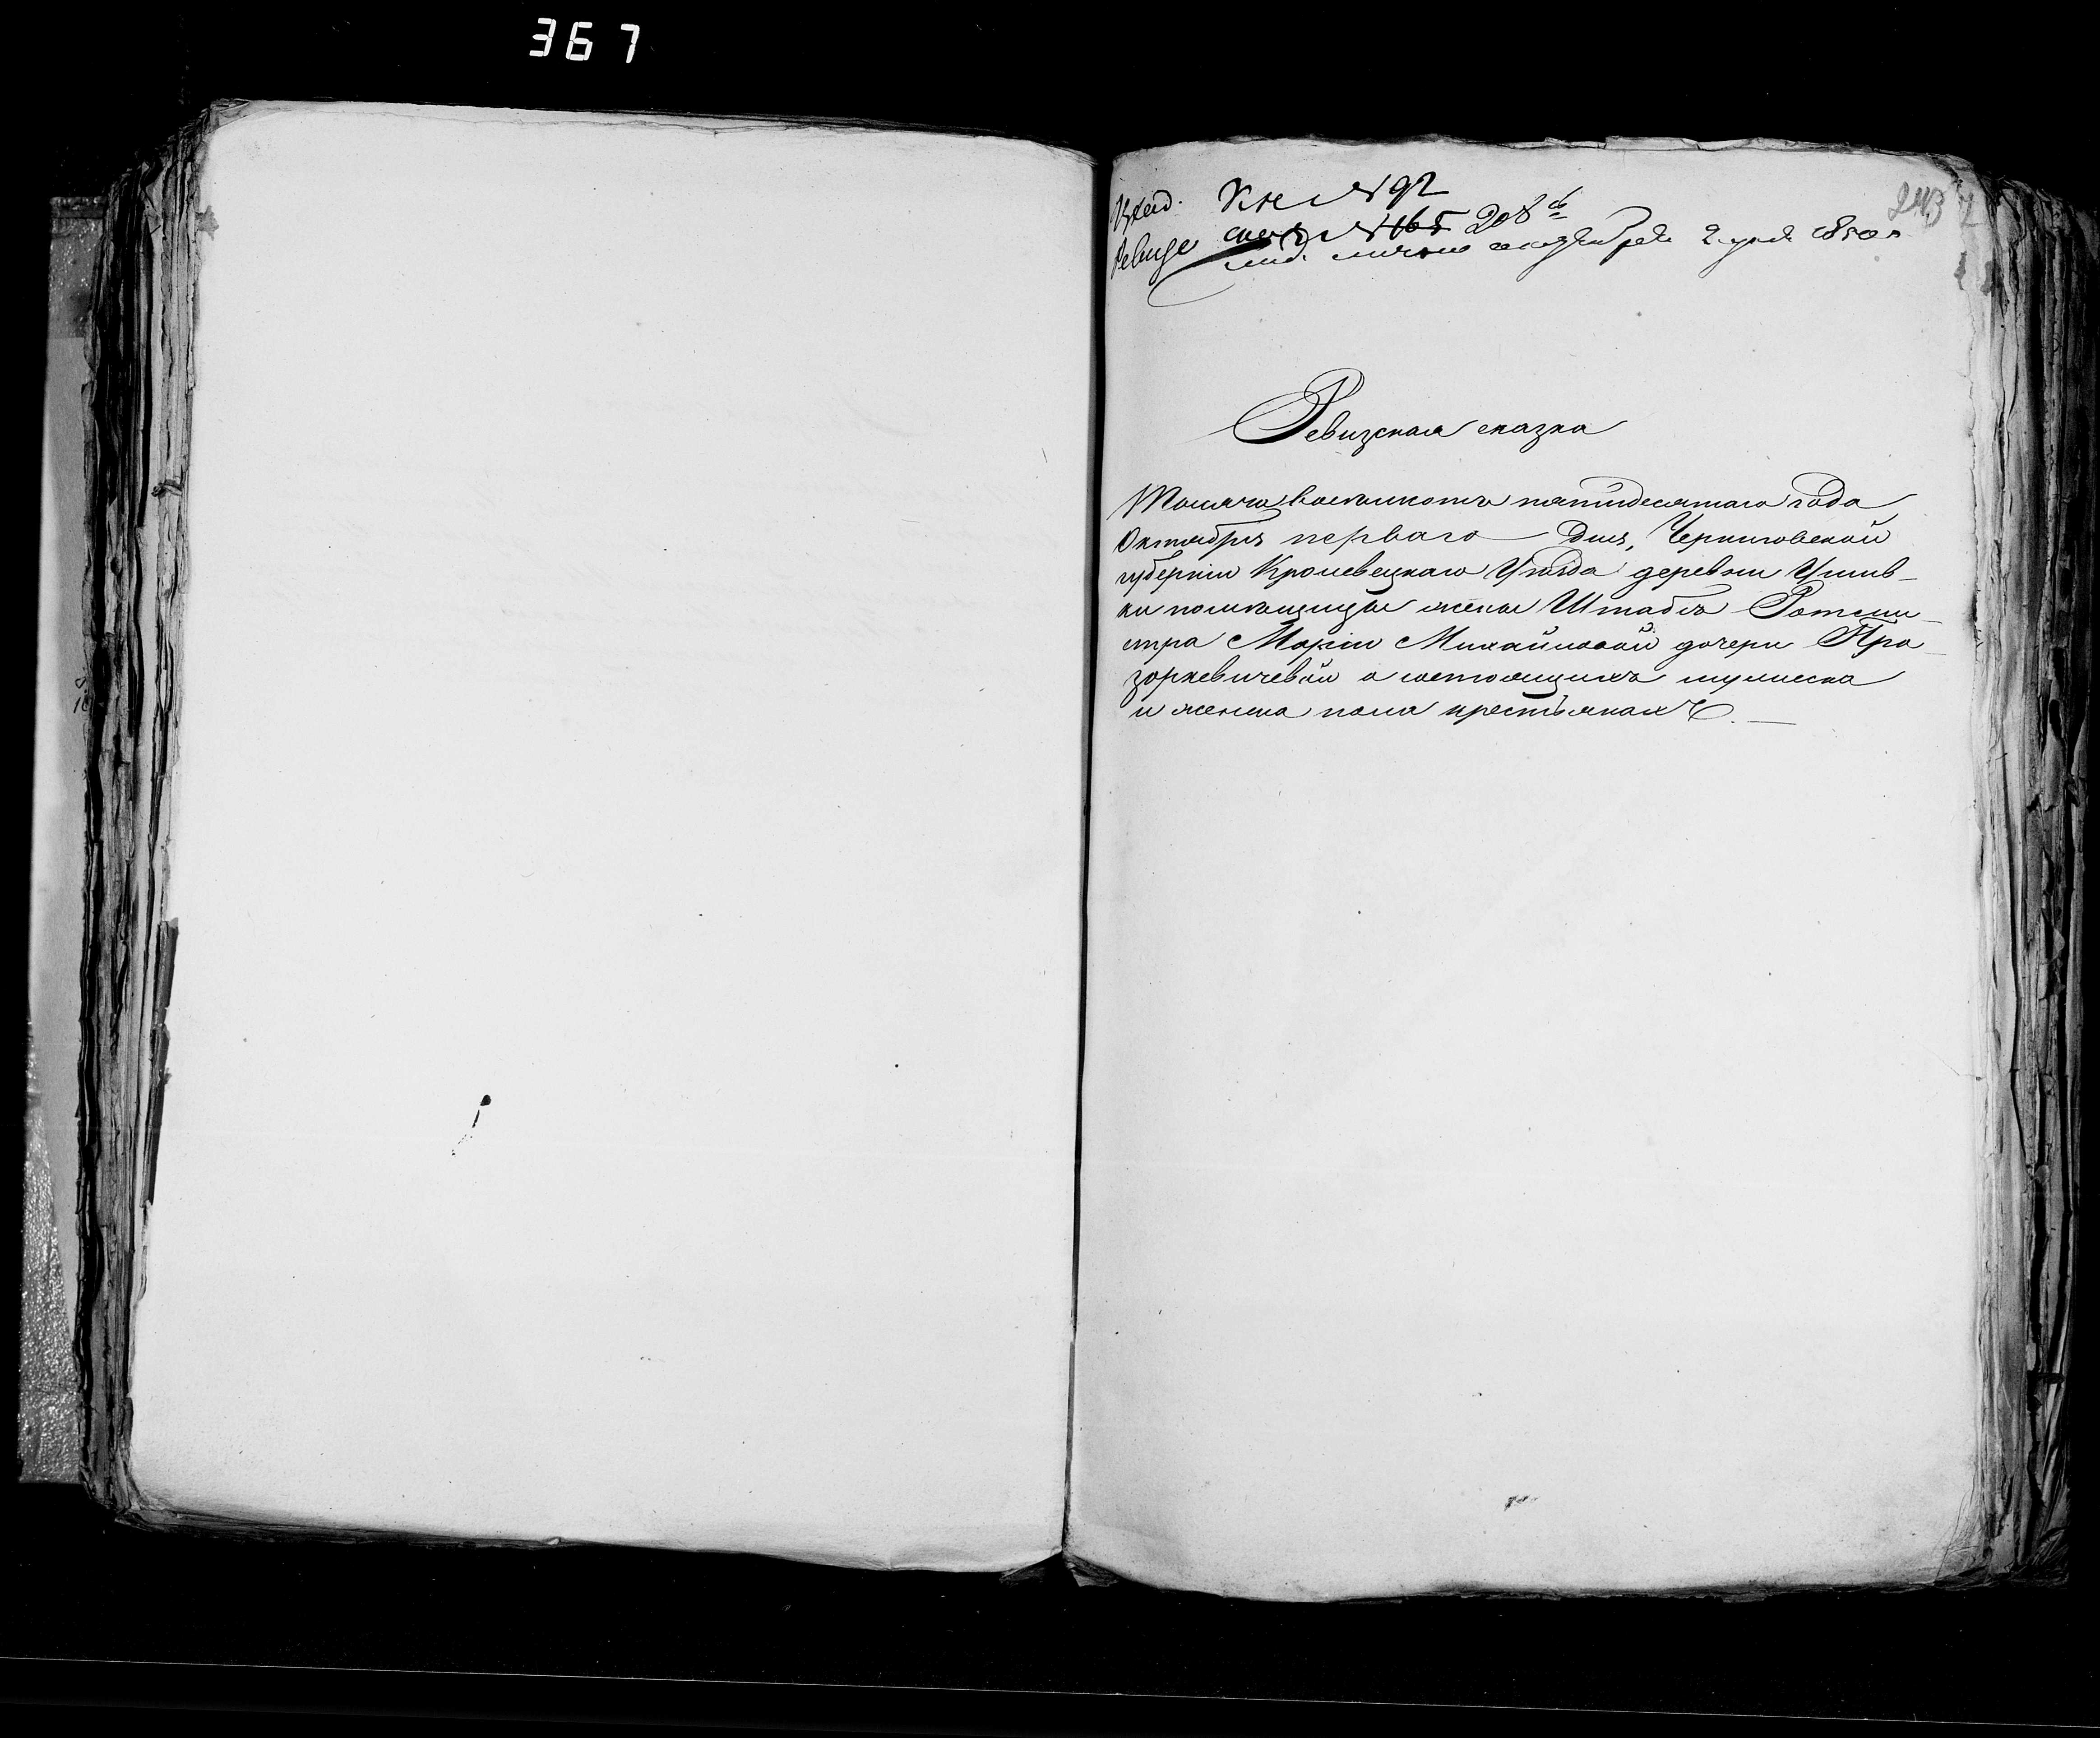 367
Кн № 92
№ 165 208
2 дня 1850 г
243
Ревизская сказка
Тысяча восемьсотъ пятидесятаго года
Октября перваго дня, Черниговской
губерніи Кролевецкаго Уѣзда деревни
ки помѣщицы жены Штабсъ Ротми-
стра Маріи Михайловой дочери Про-
зоркевичевой о состоящихъ мужеска
и женска пола крестьянахъ. —